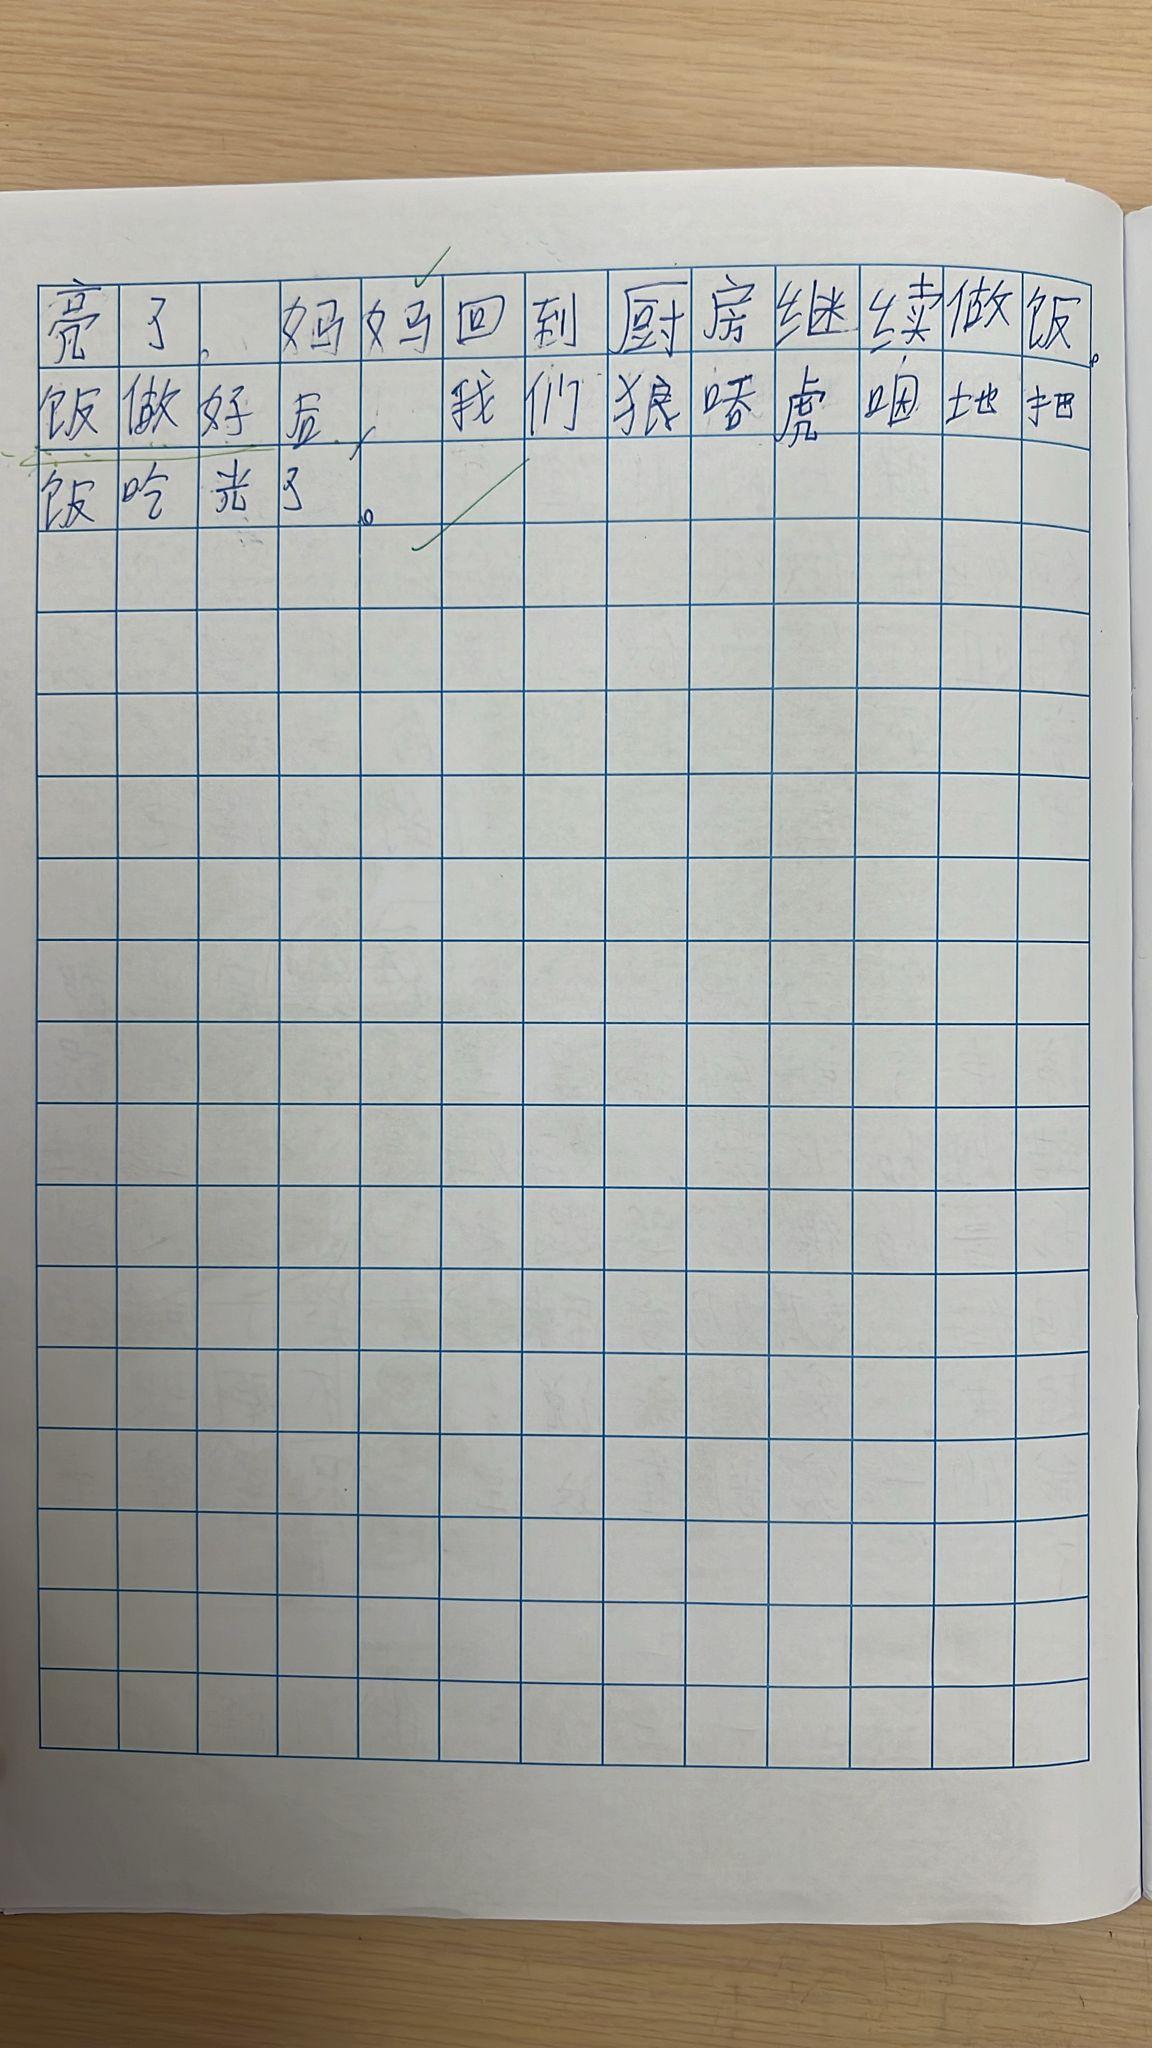 亮了。妈妈回到厨房继续做饭。
饭做好后，我们狼吞虎咽地把
饭吃光了。